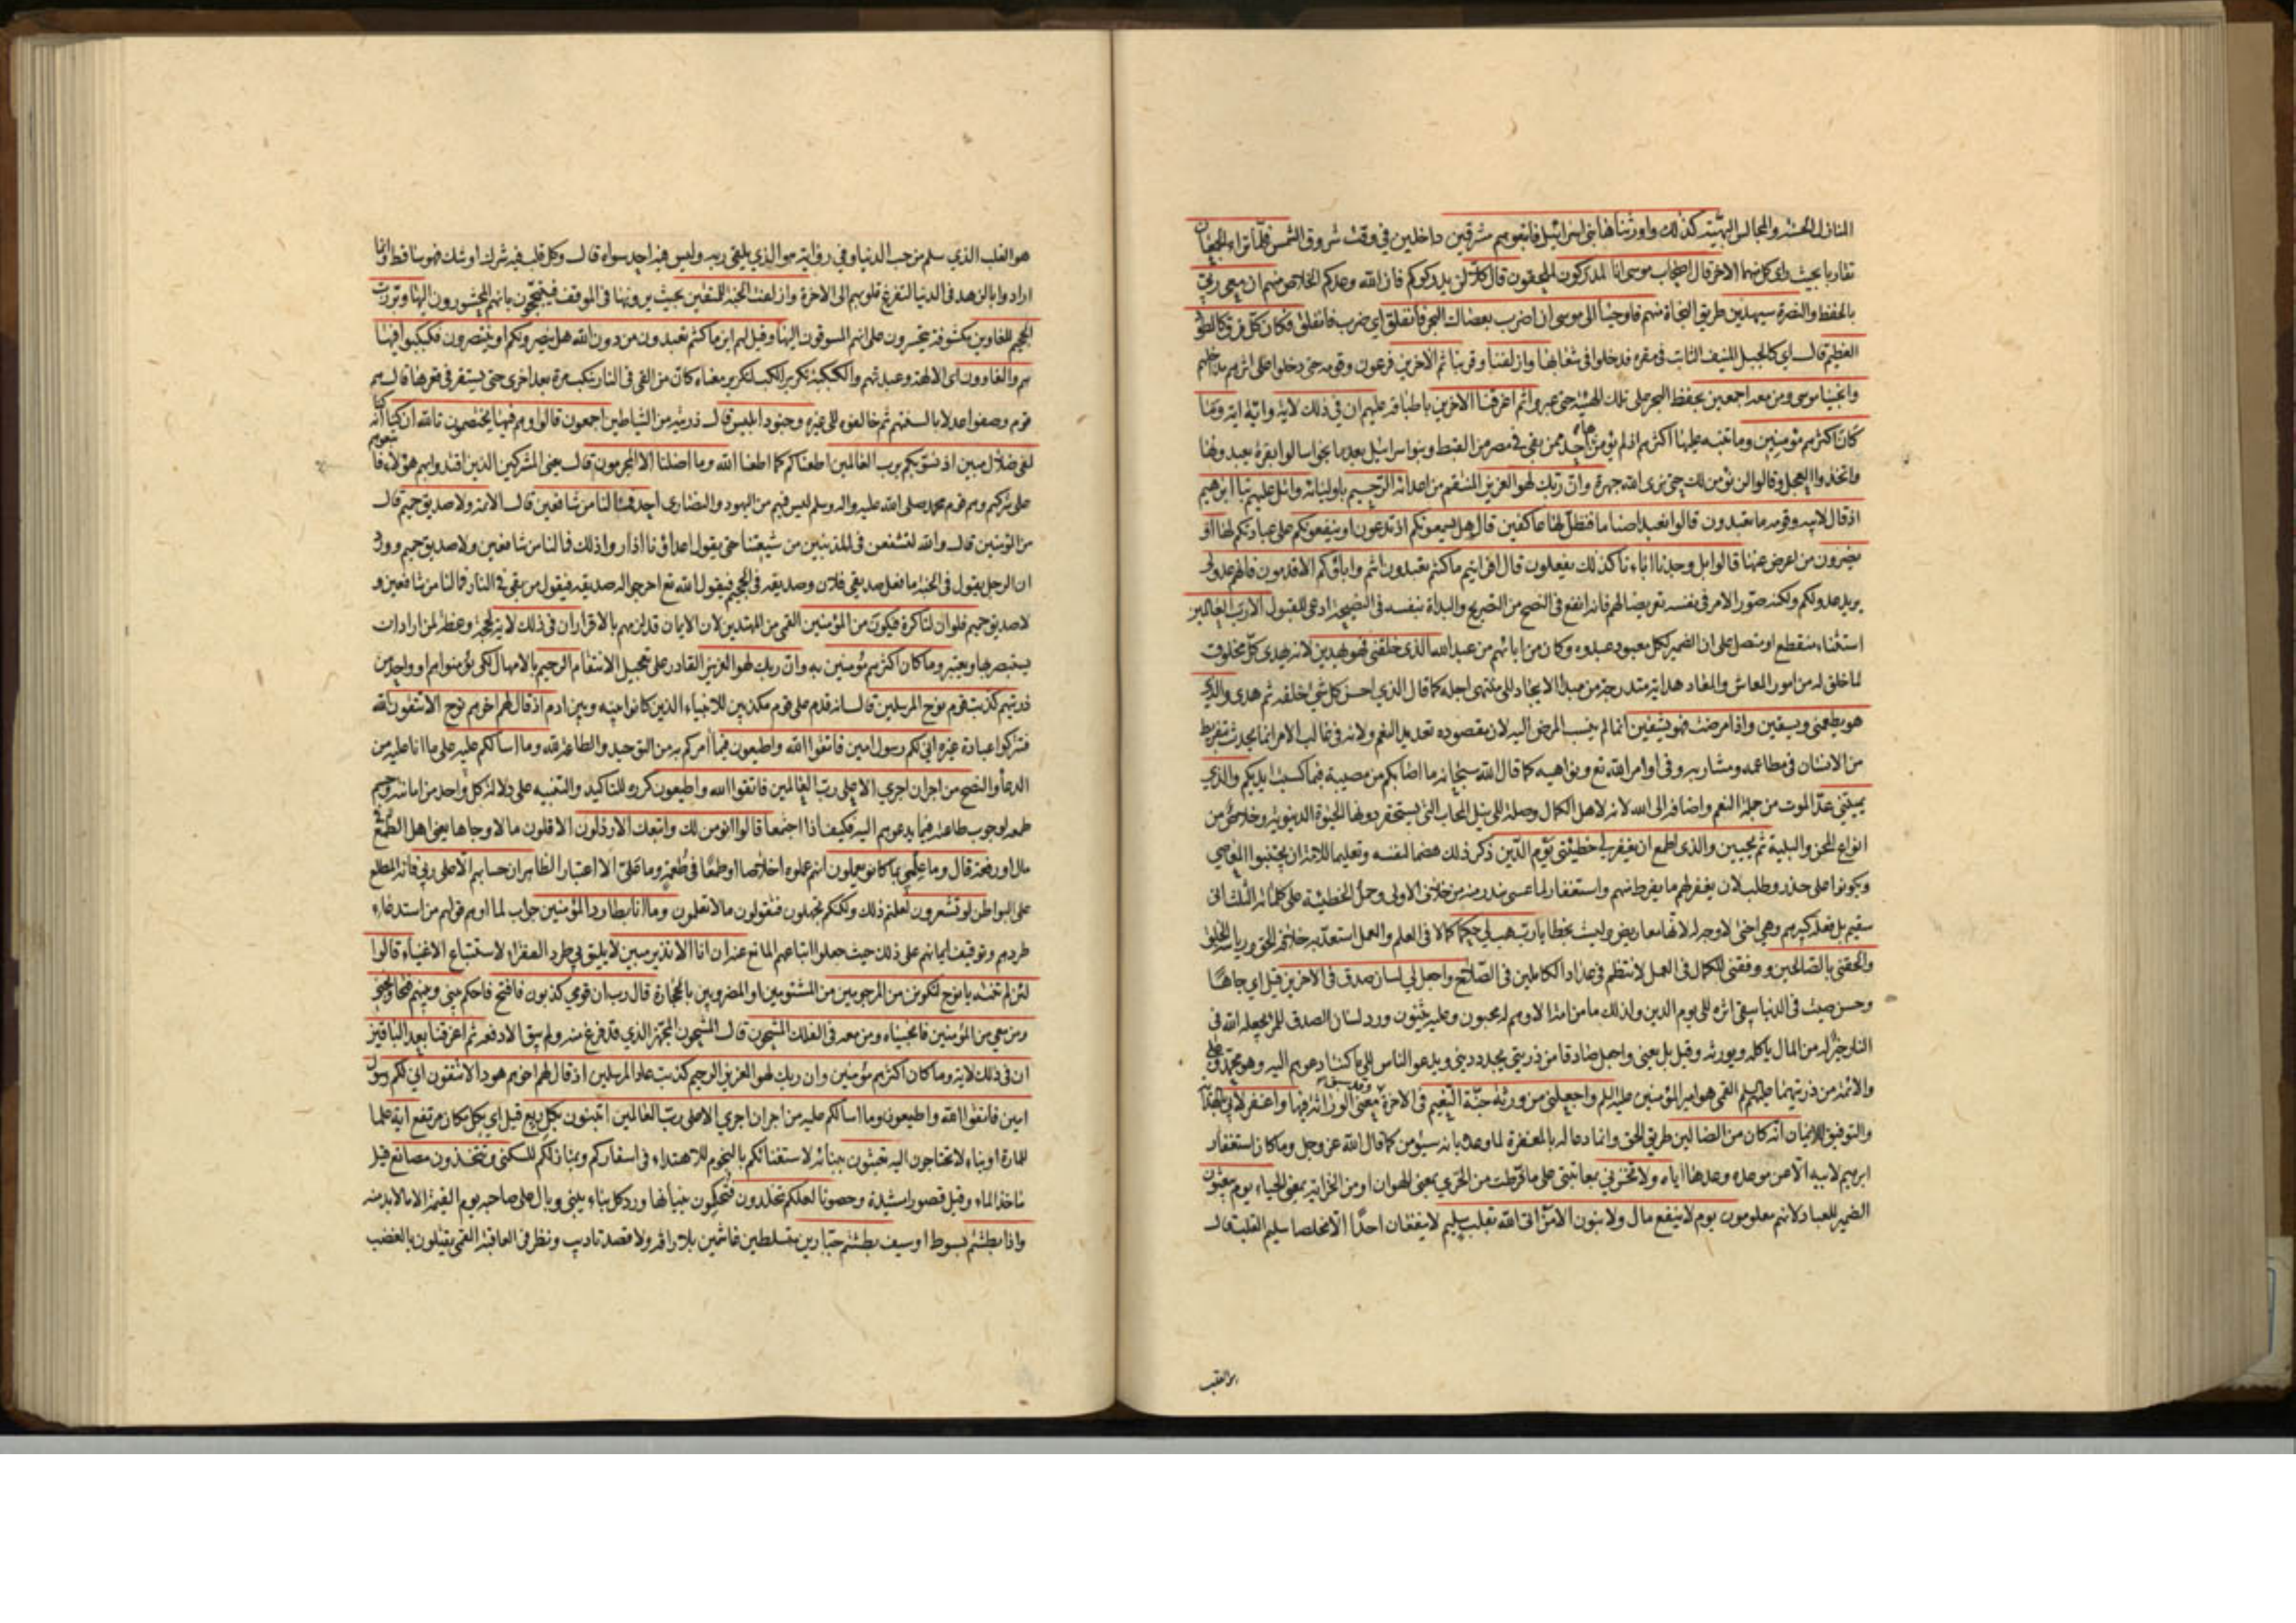 المنازل الحسنة والمجالس البهية كذلك واورثناها بنى اسرائيل فاتبعوهم مشرقين داخلين فى وقت شروق الشمس فلما تراء الجمعان
تقاربا بحيث راى كل منهما الاخر قال اصحاب موسى انا لمدركون لملحقون قال كلا لن يدركوكم فان الله وعدكم الخلاص منهم ان معى ربى
بالحفظ والنصرة سيهدين طريق النجاة منهم فاوحينا الى موسى ان اضرب بعصاك البحر فانفلق اى ضرب فانفلق فكان كل فرق كالطود
العظيم قال اى كالجبل المنيف الثابت فى مقره فدخلوا فى شعابها وازلفنا وقربنا ثم الاخرين فرعون وقومه حتى دخلوا على اثرهم مداخلهم
وانجينا موسى ومن معه اجمعين بحفظ البحر على تلك الهيئة حتى عبروا ثم اغرقنا الاخرين باطباقه عليهم ان فى ذلك لاية واية اية وما
كان اكثرهم مؤمنين وما تنبه عليها اكثرهم اذ لم يؤمن بها احد ممن بقى فى مصر من القبط وبنوا اسرائيل بعد ما نجوا سالوا بقرة يعبدونها
واتخذوا العجل وقالوا لن نؤمن لك حتى نرى الله جهرة وان ربك لهو العزيز المنتقم من اعدائه الرحيم باوليائه واتل عليهم نبا ابرهيم
اذ قال لابيه وقومه ما تعبدون قالوا نعبد اصناما فنظل لها عاكفين قال هل يسمعونكم اذ تدعون او ينفعونكم على عبادتكم لها او
يضرون من اعرض عنها قالوا بل وجدنا اباءنا كذلك يفعلون قال افرايتم ما كنتم تعبدون انتم واباؤكم الاقدمون فانهم عدو لى
يريد عدو لكم ولكنه صور الامر فى نفسه تعريضا لهم فانه انفع فى النصح من التصريح والبداة بنفسه فى النصيحة ادعى للقبول الا رب العالمين
استثناء منقطع او متصل على ان الضمير لكل معبود عبدوه وكان من ابائهم من عبد الله الذى خلقنى فهو يهدين لانه يهدى كل مخلوق
لما خلق له من امور المعاش والمعاد هداية متدرجة من مبدا الايجاد الى منتهى اجله كما قال الذى احسن كل شئ خلقه ثم هدى والذى
هو يطعمنى ويسقين واذا مرضت فهو يشفين انما لم ينسب المرض اليه لان مقصوده تعديد النعم ولانه فى غالب الامر انما يحدث بتفريط
من الانسان فى مطاعمه ومشاربه وفى اوامر الله تع ونواهيه كما قال الله سبحانه ما اصابكم من مصيبة فبما كسبت ايديكم والذى
يميتنى عد الموت من جملة النعم واضافه الى الله لانه لاهل الكمال وصلة الى نيل المحاب التى يستحقر دونها الحيوة الدنيوية وخلاص من
انواع المحن والبلية ثم يحيين والذى اطمع ان يغفر لى خطيئتى يوم الدين ذكر ذلك هضما لنفسه وتعليما للامة ان يجتنبوا المعاصى
ويكونوا على حذر وطلب لان يغفر لهم ما يفرط منهم واستغفارا لما عسى يندر منه من خلاف الاولى وحمل الخطيئة على كلماته الثلث انى
سقيم بل فعله كبيرهم وهى اختى لا وجه له لانها معاريض وليست بخطايا رب هب لى حكما كمالا فى العلم والعمل استعد به خلافة الحق ورياسة الخلق
والحقنى بالصالحين ووفقنى للكمال فى العمل لانتظم فى عداد الكاملين فى الصلاح واجعل لى لسان صدق فى الاخرين قيل اى جاها
وحسن صيت فى الدنيا يبقى اثره الى يوم الدين ولذلك ما من امة الا وهم له محبون وعليه مثنون ورد لسان الصدق للمرء يجعله الله فى
الناس خير له من المال ياكله ويورثه وقيل بل يعنى واجعل صادقا من ذريتى يجدد دينى ويدعو الناس الى ما كنت ادعوهم اليه وهو محمد وعلى
والائمة من ذريتهما عليهم السلم القمى هو امير المؤمنين عليه السلم واجعلنى من ورثة جنة النعيم فى الاخرة وقد سبق معنى الوراثة فيها واغفر لابى بالهداية
والتوفيق للايمان انه كان من الضالين طريق الحق وانما دعا له بالمغفرة لما وعده بانه سيؤمن كما قال الله عز وجل وما كان استغفار
ابرهيم لابيه الا عن موعدة وعدها اياه ولا تخزنى بمعاتبتى على ما فرطت من الخزى بمعنى الهوان او من الخزاية بمعنى الحياء يوم يبعثون
الضمير للعباد لانهم معلومون يوم لا ينفع مال ولا بنون الا من اتى الله بقلب سليم لا ينفعان احدا الا مخلصا سليم القلب قال
هو القلب
هو القلب الذى سلم من حب الدنيا وفى رواية هو الذى يلقى ربه وليس فيه احد سواه قال وكل قلب فيه شرك او شك فهو ساقط وانما
ارادوا بالزهد فى الدنيا لتفرغ قلوبهم الى الاخرة وازلفت الجنة للمتقين بحيث يرونها فى الموقف فيتبجحون بانهم المحشورون اليها وبرزت
الجحيم للغاوين مكشوفة يتحسرون على انهم المسوقون اليها وقيل لهم اين ما كنتم تعبدون من دون الله هل ينصرونكم او ينتصرون فكبكبوا فيها
هم والغاوون اى الالهة وعبدتهم والكبكبة تكرير الكب لتكرير معناه كان من القى فى النار ينكب مرة بعد اخرى حتى يستقر فى قعرها قال هم
قوم وصفوا عدلا بالسنتهم ثم خالفوه الى غيره وجنود ابليس قال ذريته من الشياطين اجمعون قالوا وهم فيها يختصمون تالله ان كنا انه
لفى ضلال مبين اذ نسويكم برب العالمين اطعناكم كما اطعنا الله وما اضلنا الا المجرمون قال يعنى المشركين الذين اقتدوا بهم هؤلاء فاتبعوهم
على شركهم وهم قوم محمد صلى الله عليه واله وسلم ليس فيهم من اليهود والنصارى احد فما لنا من شافعين قال الائمة ولا صديق حميم قال
من المؤمنين قال والله لنشفعن فى المذنبين من شيعتنا حتى يقول اعداؤنا اذا راوا ذلك فما لنا من شافعين ولا صديق حميم وورد
ان الرجل يقول فى الجنة ما فعل صديقى فلان وصديقه فى الجحيم فيقول الله تع اخرجوا له صديقه فيقول من بقى فى النار فما لنا من شافعين و
لا صديق حميم فلو ان لنا كرة فنكون من المؤمنين القمى من المهتدين لان الايمان قد لزمهم بالاقرار ان فى ذلك لاية لحجة وعظة لمن اراد ان
يستبصر بها ويعتبر وما كان اكثرهم مؤمنين به وان ربك لهو العزيز القادر على تعجيل الانتقام الرحيم بالامهال لكى يؤمنوا هم او واحد من
ذريتهم كذبت قوم نوح المرسلين قال انه قدم على قوم مكذبين للانبياء الذين كانوا بينه وبين ادم اذ قال لهم اخوهم نوح الا تتقون الله
فتتركوا عبادة غيره انى لكم رسول امين فاتقوا الله واطيعون فيما امركم به من التوحيد والطاعة لله وما اسالكم عليه على ما انا عليه من
الدعاء والنصح من اجر ان اجرى الا على رب العالمين فاتقوا الله واطيعون كرره للتاكيد والتنبيه على دلالة كل واحد من امانته وحسم
طمعه لوجوب طاعته فيما يدعوهم اليه فكيف اذا اجتمعا قالوا انؤمن لك واتبعك الارذلون الاقلون مالا وجاها يعنى اهل الطمع فى
مال او رفعة قال وما علمى بما كانوا يعملون انهم عملوه اخلاصا او طمعا فى طعمة وما على الا اعتبار الظاهر ان حسابهم الا على ربى فانه المطلع
على البواطن لو تشعرون لعلمتم ذلك ولكنكم تجهلون فتقولون ما لا تعلمون وما انا بطارد المؤمنين جواب لما اوهم قولهم من استدعاء
طردهم وتوقيف ايمانهم على ذلك حيث جعلوا اتباعهم المانع عنه ان انا الا نذير مبين لا يليق بى طرد الفقراء لاستتباع الاغنياء قالوا
لئن لم تنته يا نوح لتكونن من المرجومين من المشتومين او المضروبين بالحجارة قال رب ان قومى كذبون فافتح فاحكم بينى وبينهم فتحا ونجنى
ومن معى من المؤمنين فانجيناه ومن معه فى الفلك المشحون قال المشحون المجهز الذى قد فرغ منه ولم يبق الا دفعه ثم اغرقنا بعد الباقين
ان فى ذلك لاية وما كان اكثرهم مؤمنين وان ربك لهو العزيز الرحيم كذبت عاد المرسلين اذ قال لهم اخوهم هود الا تتقون انى لكم رسول
امين فاتقوا الله واطيعون وما اسالكم عليه من اجر ان اجرى الا على رب العالمين اتبنون بكل ريع قيل اى بكل مكان مرتفع اية علما
للمارة او بناء لا تحتاجون اليه تعبثون ببنائه لاستغنائكم بالنجوم للاهتداء فى اسفاركم وبمنازلكم للسكنى وتتخذون مصانع قيل
ماخذ الماء وقيل قصورا مشيدة وحصونا لعلكم تخلدون فتحكمون بنيانها ورد كل بناء يبنى وبال على صاحبه يوم القيمة الا ما لا بد منه
واذا بطشتم بسوط او سيف بطشتم جبارين متسلطين غاشمين بلا رافة ولا قصد تاديب ونظر فى العاقبة القمى يقتلون بالغضب